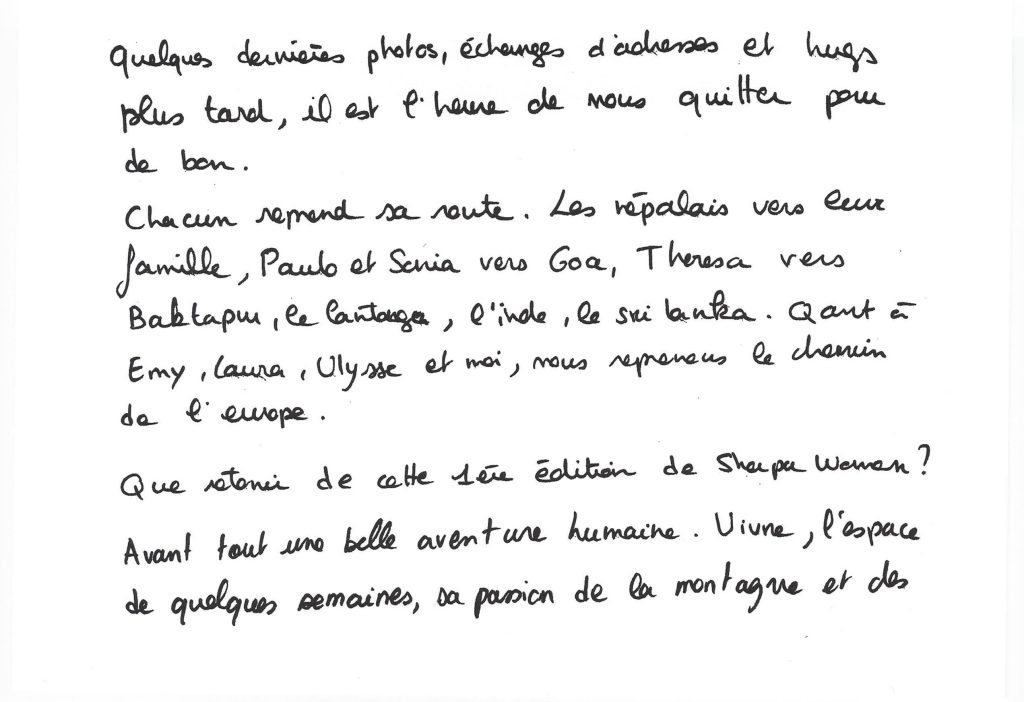 Quelques dernières photos, échanges d'adresses et hugs
plus tard, il est l'heure de nous quitter pour
de bon.
Chacun reprend sa route. Les népalais vers leur
famille, Paulo et Sonia vers Goa, Theresa vers
Baktapur, le Lantang, l'inde, le sri lanka. Qant à
Emy, Laura, Ulysse et moi, nous reprenons le chemin
de l'europe.
Que retenir de cette 1ère édition de Sherpa Women ?
Avant tout une belle aventure humaine. Vivre, l'espace
de quelques semaines, sa passion de la montagne et des